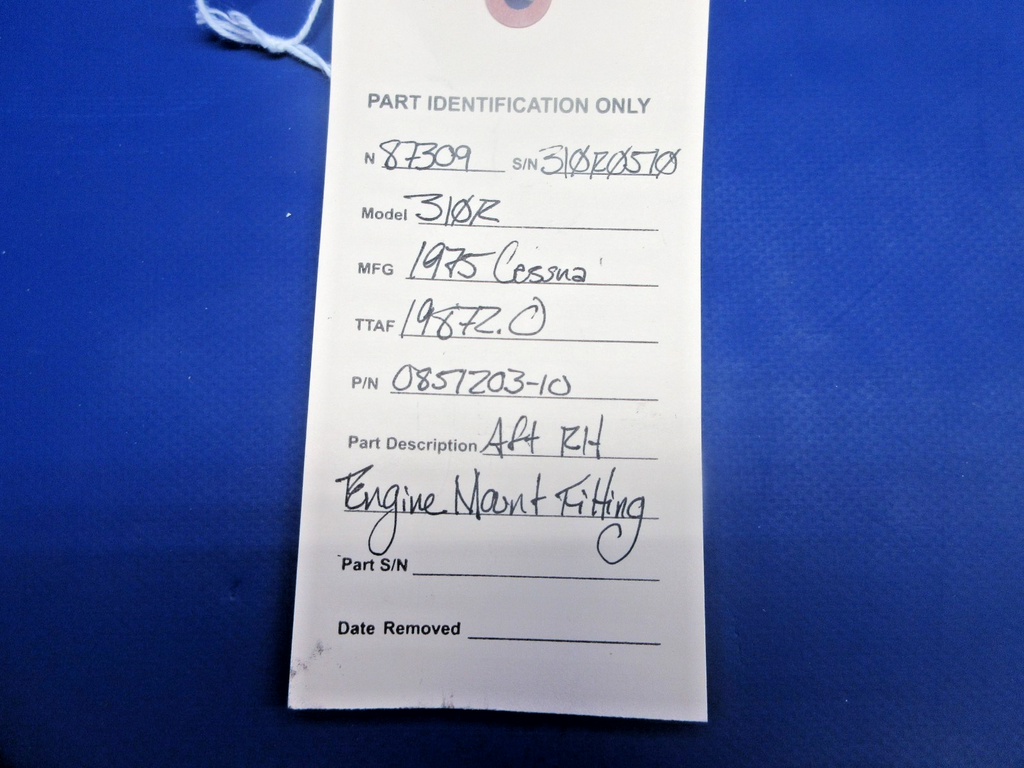 PART IDENTIFICATION ONLY
N 87309 S/N 310R0510
Model 310R
MFG 1975 Cessna
TTAF 19872.0
P/N 0851203-10
Part Description Aft RH
Engine Mount Fitting
Part S/N
Date Removed